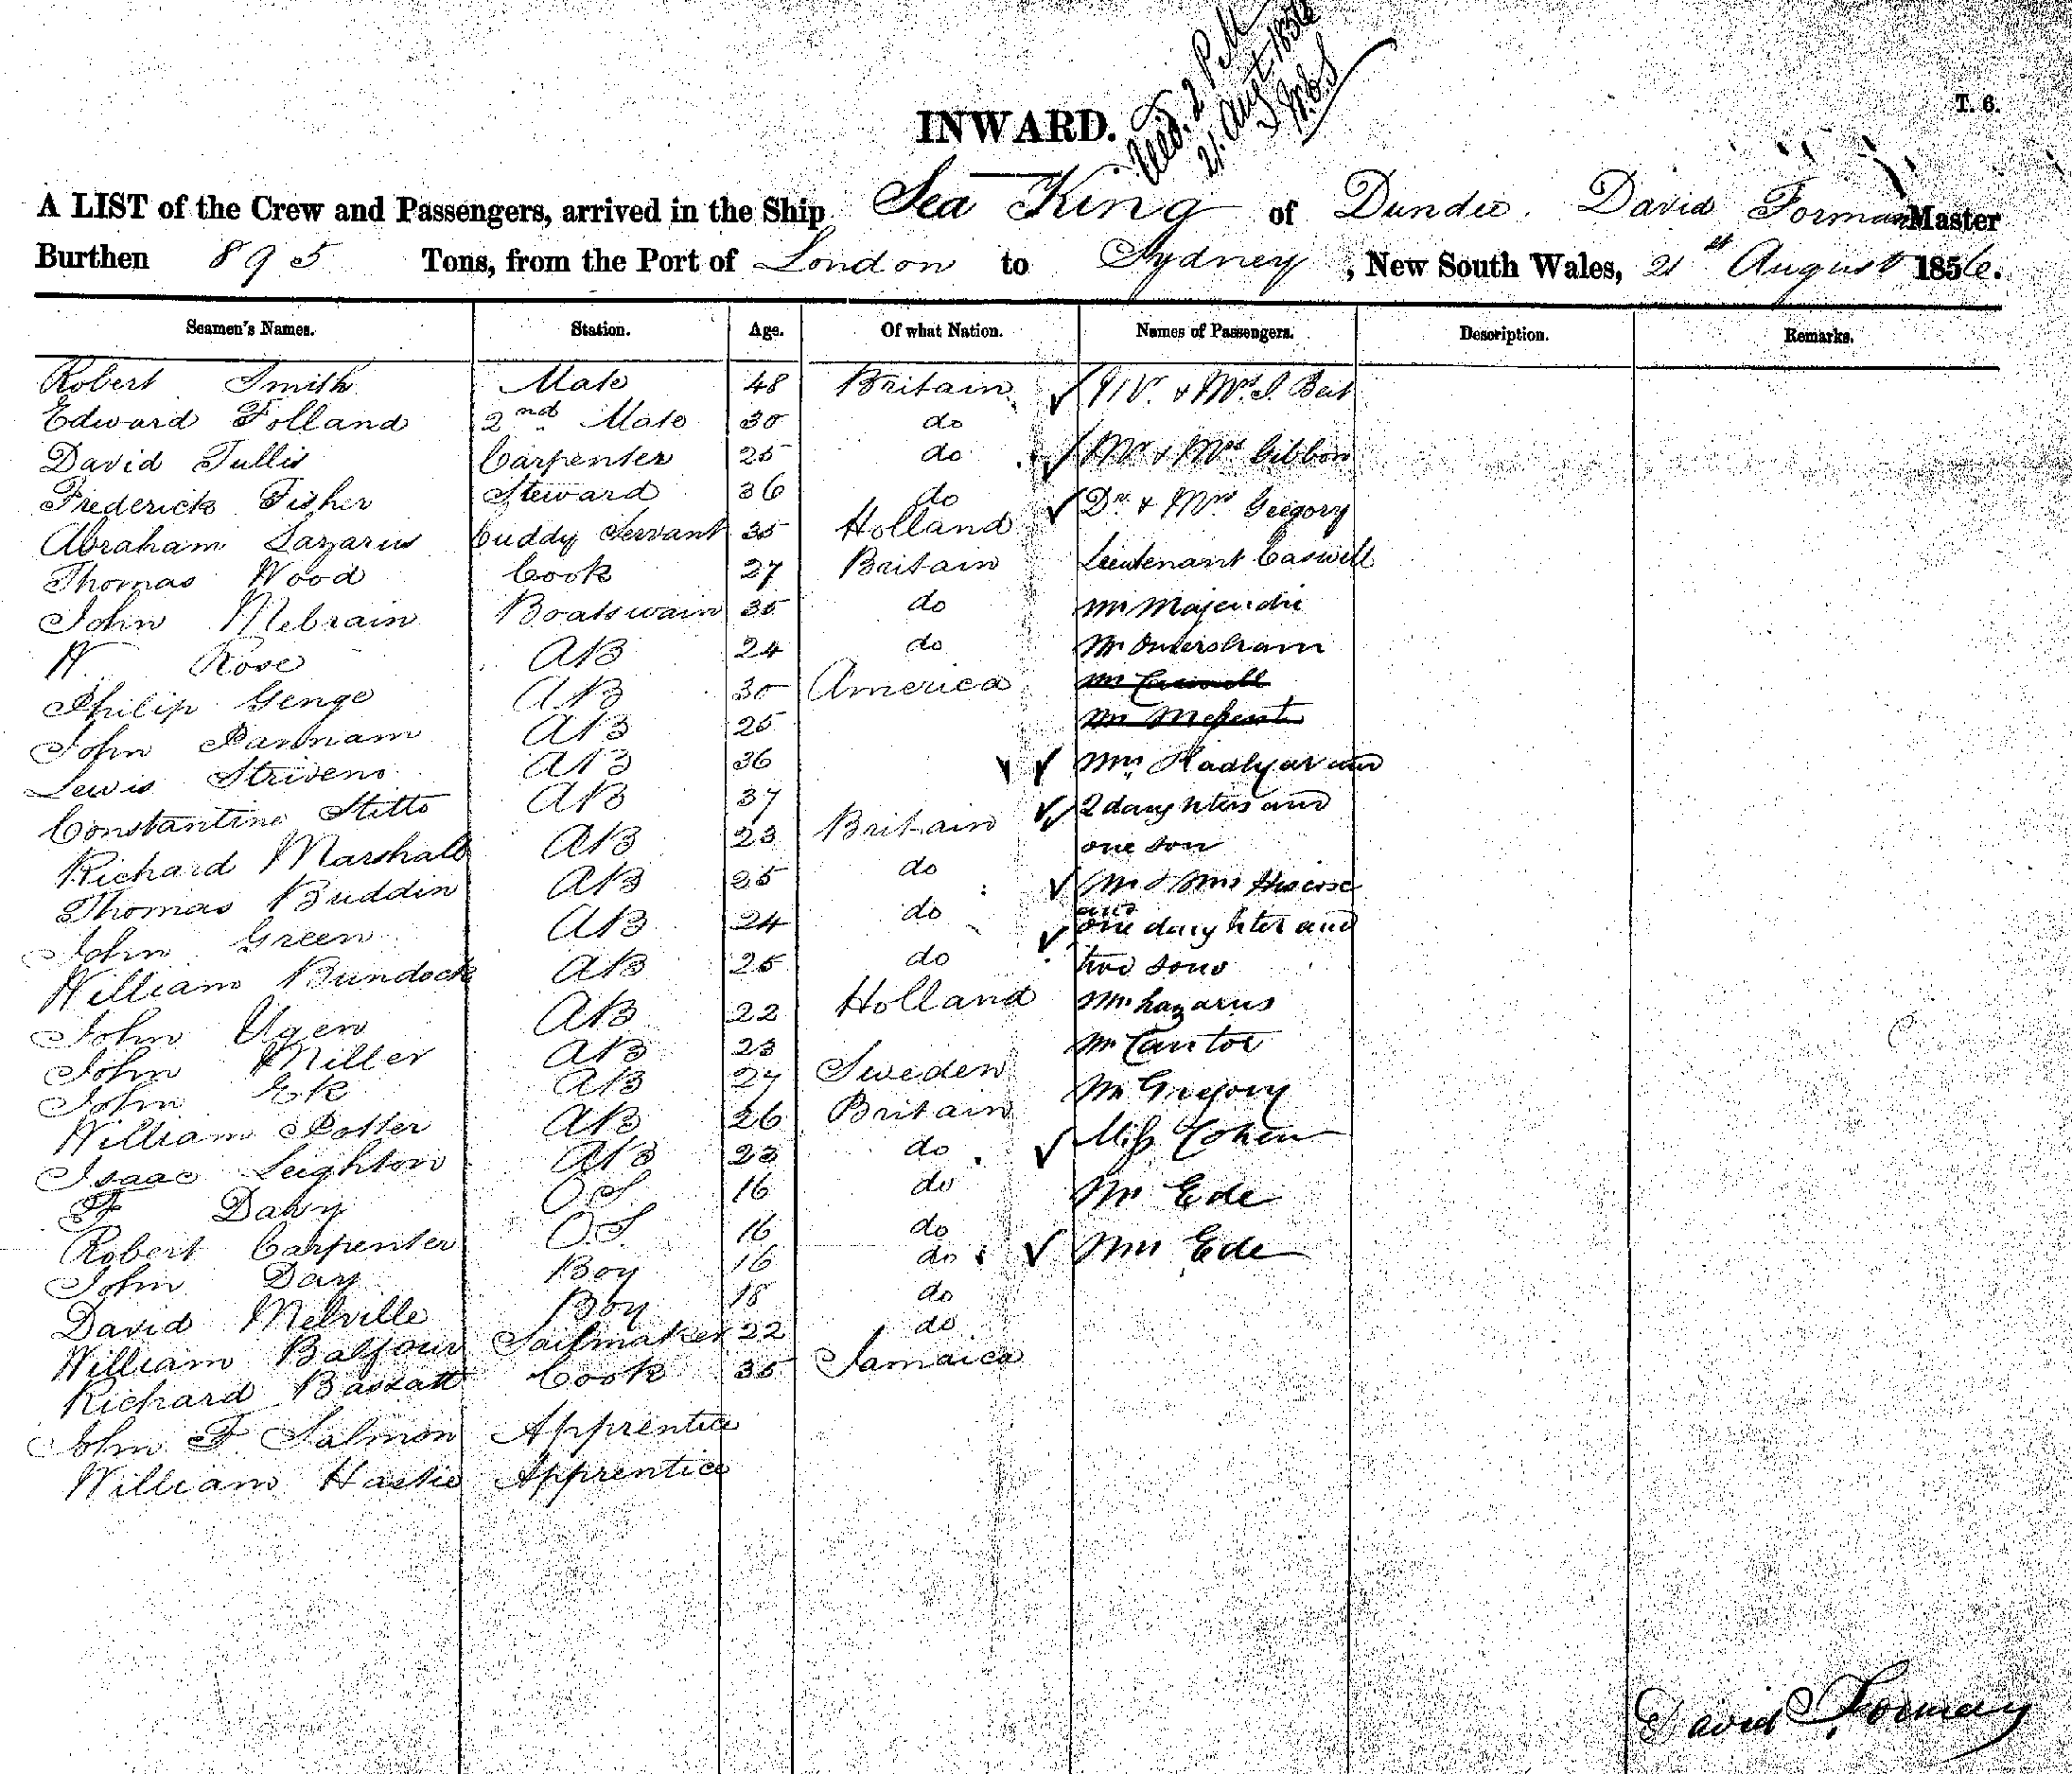 Recd. 2 PM
21 August 1856
T. 6.
INWARD.
A LIST of the Crew and Passengers, arrived in the Ship Sea King of Dundee. David Forman Master
Burthen 895 Tons, from the Port of London to Sydney, New South Wales, 21st August 1856.
Seamen's Names. Station. Age. Of what Nation. Names of Passengers. Description. Remarks.
Robert Smith Mate 48 Britain Mr. & Mrs.
Edward Folland 2nd Mate 30 do
David Tullis Carpenter 25 do Mr & Mrs Gibbon
Frederick Fisher Steward 36 do Dr. & Mrs Gregory
Abraham Lazarus Cuddy Servant 35 Holland
Thomas Wood Cook 27 Britain Lieutenant Caswell
John Mebrain Boatswain 35 do Mr Majendie
H. Rose AB 24 do Mr
Philip Genge AB 30 America Mr
John Pannam AB 25 Mr
Lewis Strivens AB 36 Mrs
Constantine Stitts AB 37 2 daughters and
Richard Marshall AB 23 Britain one son
Thomas Buddin AB 25 do Mr & Mrs
and
John Green AB 24 do one daughter and
William Bundock AB 25 do two sons
John Ugen AB 22 Holland Mr Lazarus
John Miller AB 23 Mr Cantor
John Ek AB 27 Sweden Mr Gregory
William Potter AB 26 Britain
Isaac Leighton AB 23 do Miss Cohen
F Davy OS 16 do Mr Ede
Robert Carpenter OS 16 do
John Day Boy 16 do Mrs Ede
David Melville Boy 18 do
William Balfour Sailmaker 22 do
Richard Bassatt Cook 35 Jamaica
John F Salmon Apprentice
William Hastie Apprentice
David Forman